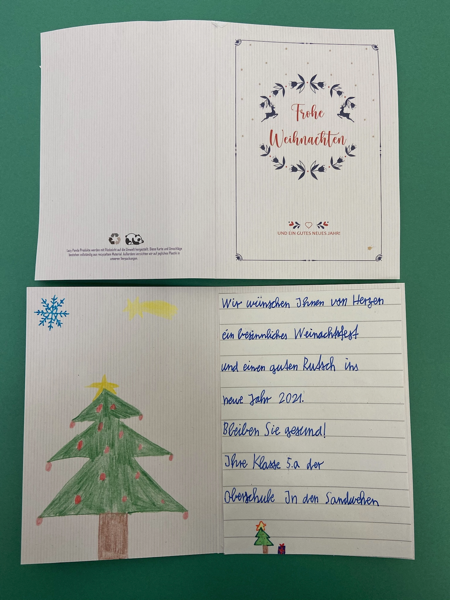 Frohe
Weihnachten
UND EIN GUTES NEUES JAHR!
Wir wünschen Ihnen von Herzen
ein besinnliches Weinachtsfest
und einen guten Rutsch ins
neue Jahr 2021.
Bleiben Sie gesund!
Ihre Klasse 5a der
Oberschule In den Sandwehen